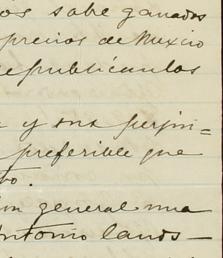 os sobre ganados
precios de Mexico
republicanlos
a y sus perjui=
preferible que
bo.
on general una
Antonio lands—